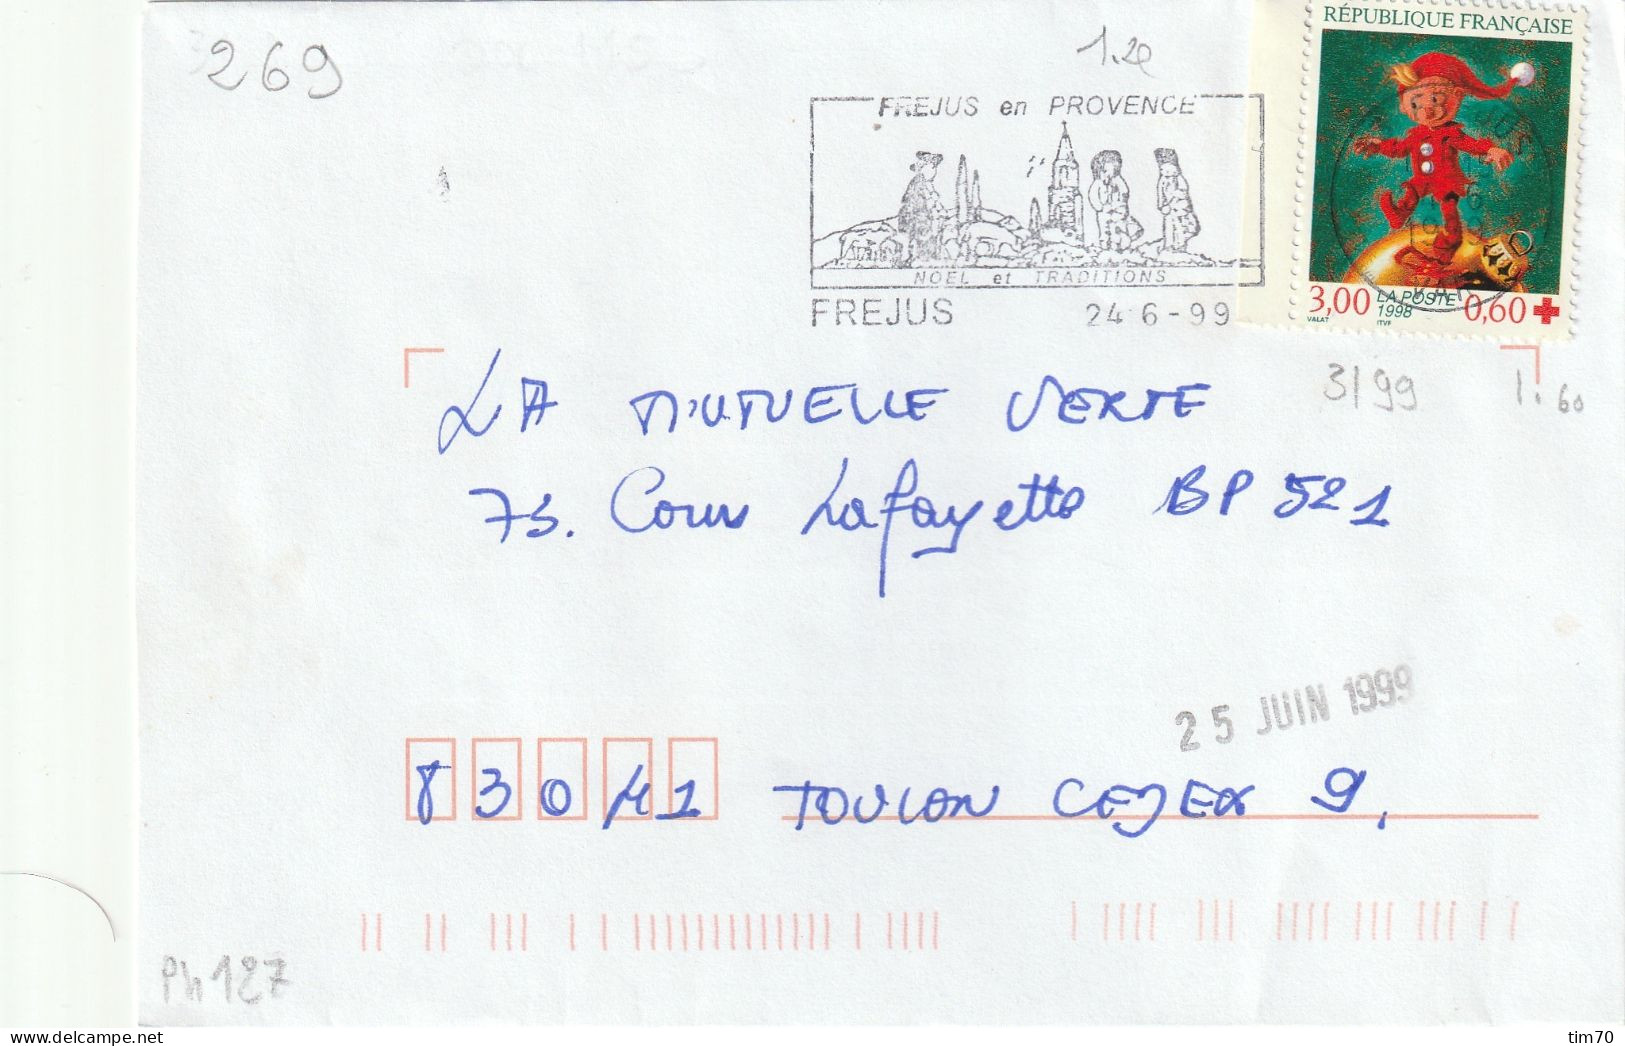 269
1.20
RÉPUBLIQUE FRANÇAISE
FREJUS en PROVENCE
NOEL et TRADITIONS
FREJUS 24-6-99
VAR
3,00 LA POSTE 1998 0,60
VALAT ITVF
3/99 1.60
LA MUTUELLE VERTE
73. Cours Lafayette BP 521
25 JUIN 1999
83041 TOULON CEDEX 9.
Ph 127
tim70